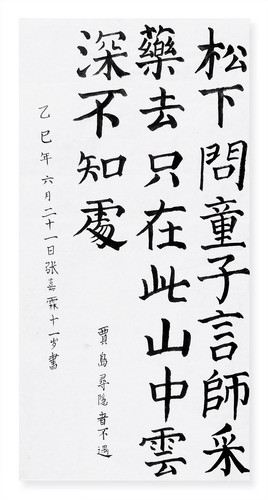 松下問童子言師采
藥去只在此山中雲
深不知處
賈島尋隱者不遇
乙巳年六月二十一日张嘉霖十一岁書